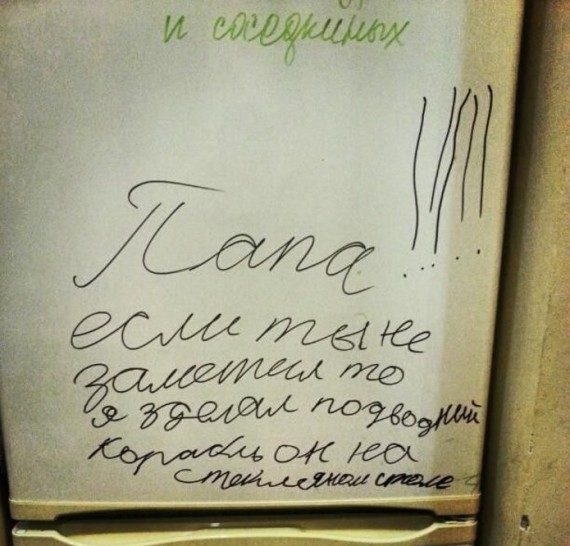 и соседкиных
Папа!!!!!
если ты не
заметил то
я зделал подводний
корабль он на
стекляном столе